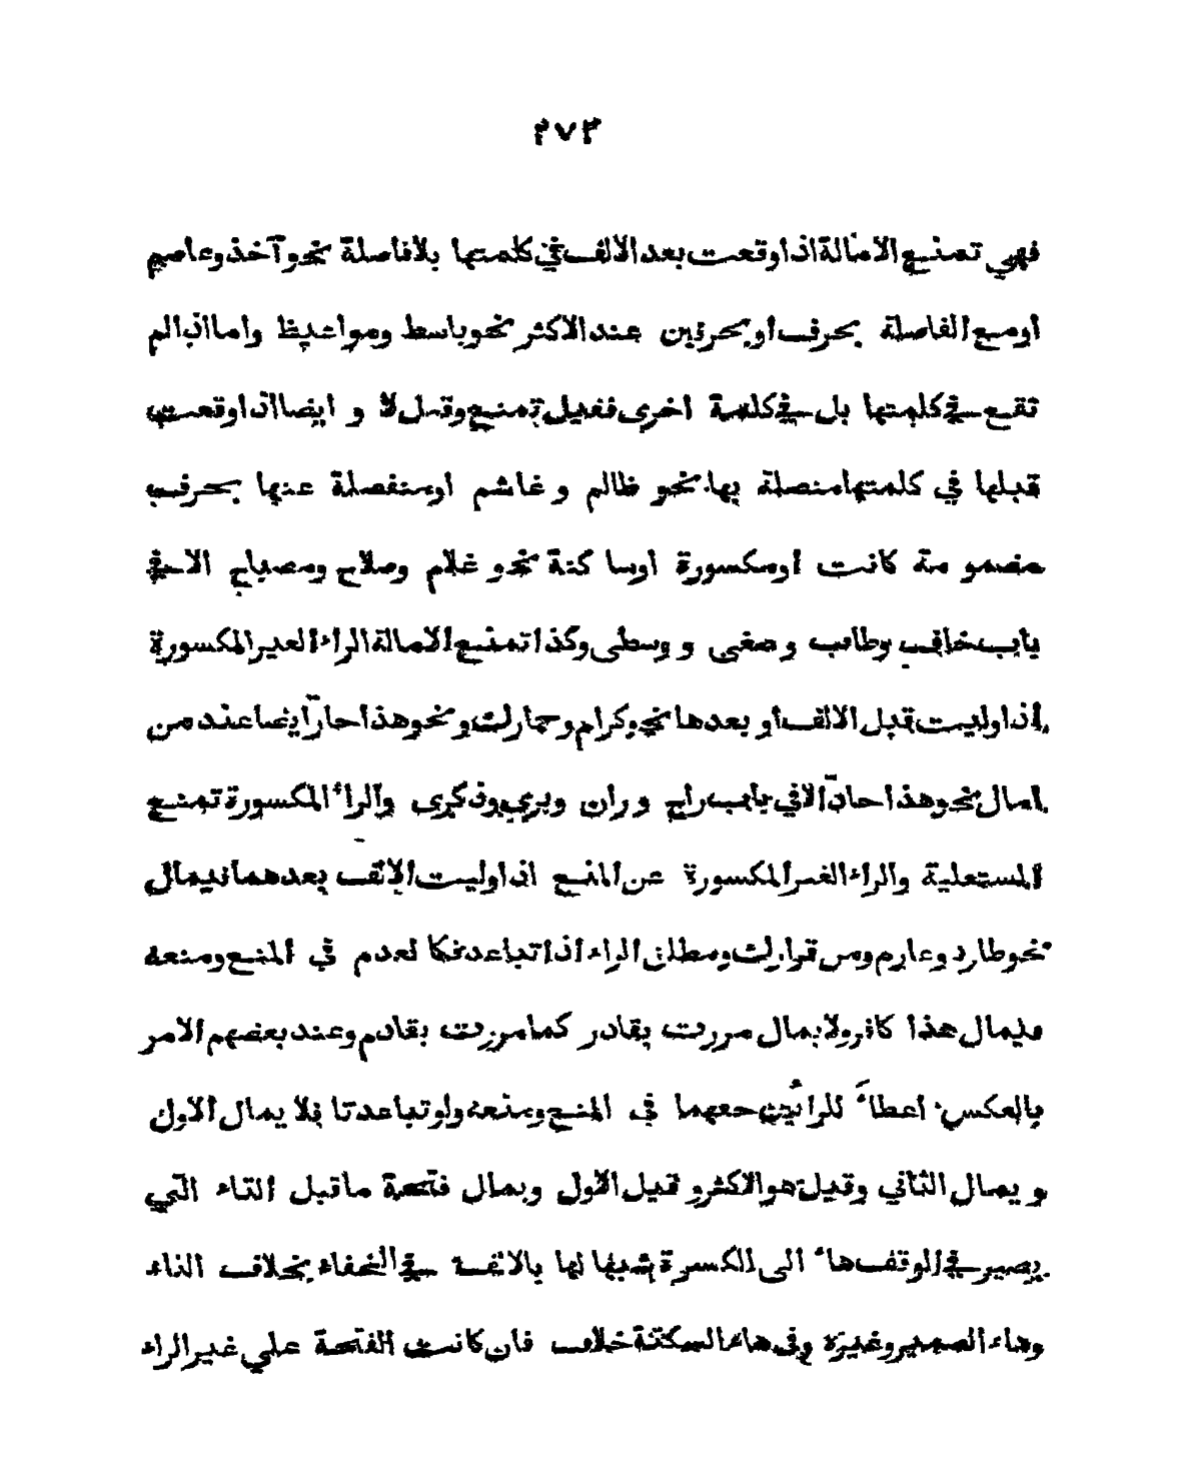 ٢٧٣
فهي تمنع الامالة اذا وقعت بعد الالف في كلمتها بلا فاصلة نحو آخذ وعاصم
او مع الفاصلة بحرف او بحرفين عند الاكثر نحو باسط ومواعيظ واما اذا لم
تقع في كلمتها بل في كلمة اخرى فقيل تمنع وقيل لا و ايضا اذا وقعت
قبلها في كلمتها متصلة بها نحو ظالم و غاشم او منفصلة عنها بحرف
مضمومة كانت او مكسورة او ساكنة نحو غلام وصلاح ومصباح الا في
باب خاف وطاب و صغى و وسطى وكذا تمنع الامالة الراء الغير المكسورة
اذا وليت قبل الالف او بعدها نحو كرام وحمارك و نحو هذا حارّ ايضا عند من
امال نحو هذا حادّ الا في باب راح و ران ويرى وذكرى والراء المكسورة تمنع
المستعلية والراء الغير المكسورة عن المنع اذا وليت الالف بعدهما فيمال
نحو طارد وعارم ومن قرارك ومطلق الراء اذا تباعد فكا لعدم في المنع ومنعه
فيمال هذا كافر ولا يمال مررت بقادر كما مررت بقادم وعند بعضهم الامر
بالعكس اعطاءً للرائين حقهما في المنع ومنعه ولو تباعدتا فلا يمال الاول
و يمال الثاني وقيل هو الاكثر و قيل الاول ويمال فتحة ما قبل التاء التي
يصير في الوقف هاء الى الكسرة شبها لها بالالف في الخفاء بخلاف التاء
وهاء الضمير وغيره وفى هاء السكتة خلاف فان كانت الفتحة على غير الراء